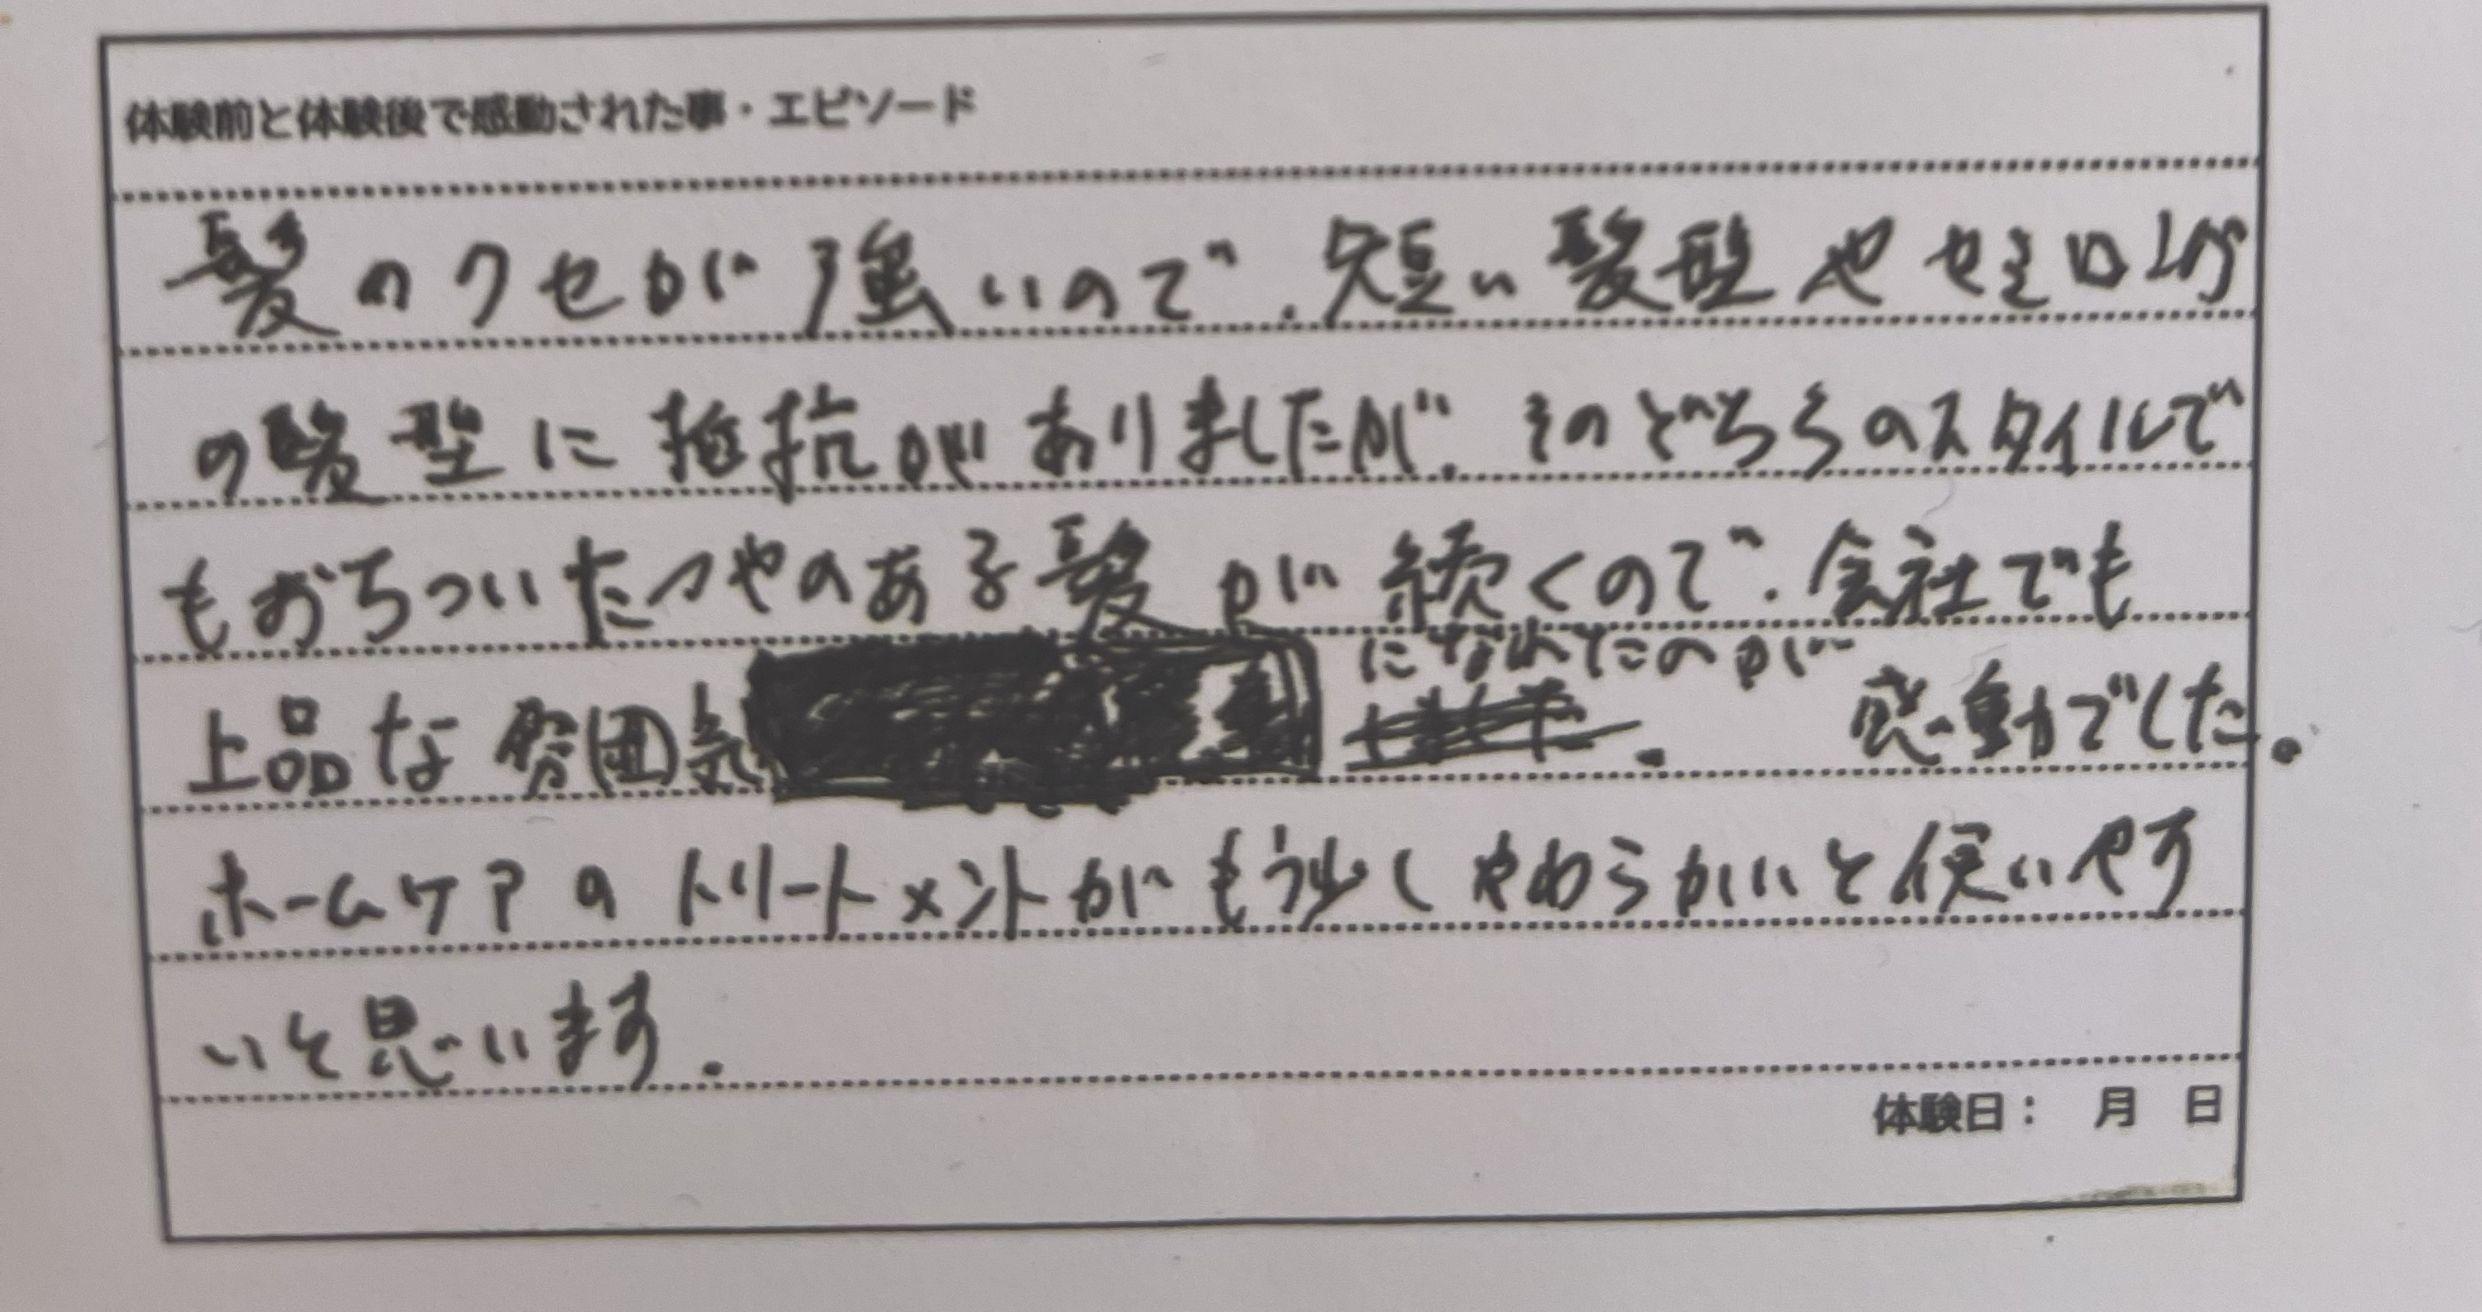 体験前と体験後で感動された事・エピソード
髪のクセが強いので、短い髪型や
の髪型に抵抗がありましたが、そのどちらのスタイルで
もおちついたつやのある髪が続くので、会社でも
になれたのが
上品な雰囲気 感動でした。
ホームケアのトリートメントがもう少しやわらかいと使いやす
いと思います。
体験日： 月 日